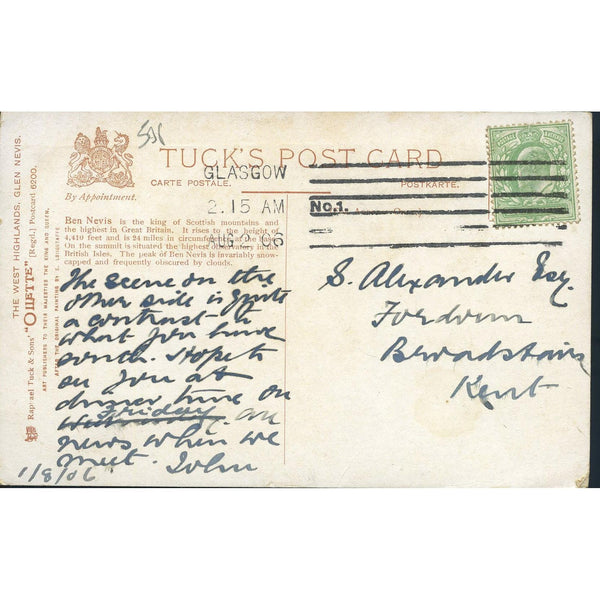 THE WEST HIGHLANDS, GLEN NEVIS.
Raphael Tuck & Sons' "OILETTE" [Regd.] Postcard 6200.
ART PUBLISHERS TO THEIR MAJESTIES THE KING AND QUEEN.
AFTER THE ORIGINAL PAINTING BY
By Appointment.
TUCK'S POST CARD
CARTE POSTALE.
POSTKARTE.
GLASGOW
2.15 AM
AUG 2 06
No.1.
Ben Nevis is the king of Scottish mountains and
the highest in Great Britain. It rises to the height of
4,410 feet and is 24 miles in circumference at the
On the summit is situated the highest observatory in the
British Isles. The peak of Ben Nevis is invariably snow-
capped and frequently obscured by clouds.
The scene on the
other side is quite
a contrast to
what you have
Hope to
see you at
dinner time on
Friday. all
news when we
meet. John
1/8/06
S. Alexander Esq.
Broadstairs
Kent